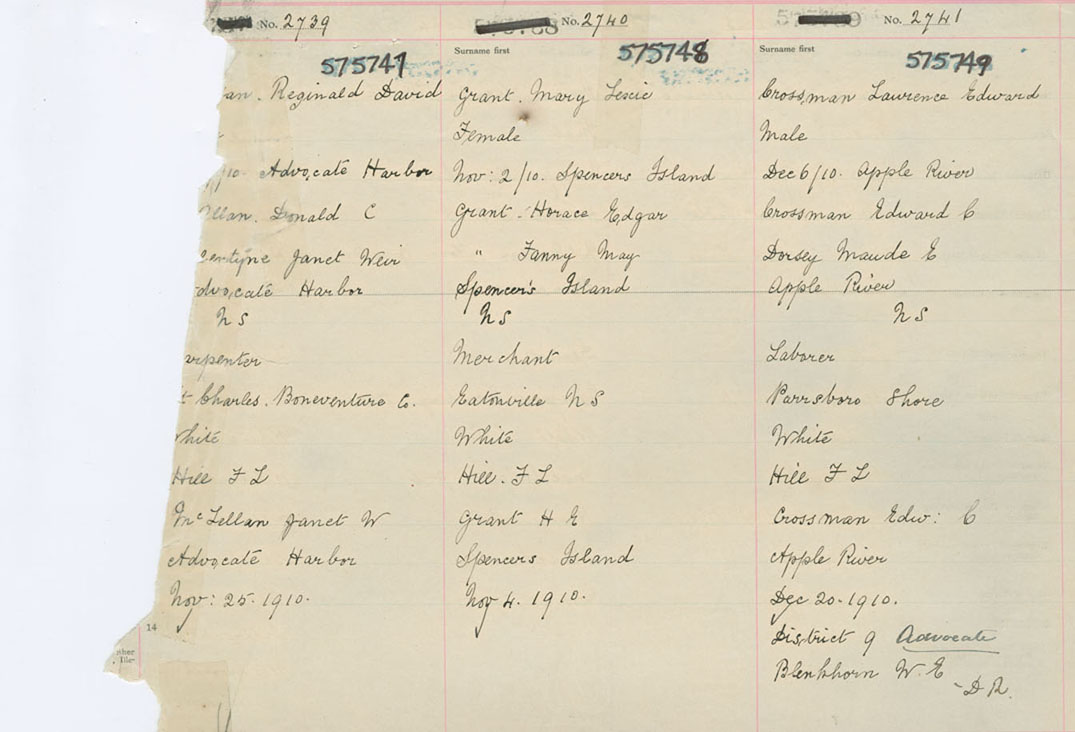 No. 2739
575747
an. Reginald David
/10. Advocate Harbor
llan. Donald C
entyne Janet Weir
dvocate Harbor
N S
arpenter
t Charles. Boneventure Co.
White
Hill F L
McLellan Janet W
Advocate Harbor
Nov: 25. 1910.
14
No. 2740
Surname first
575748
Grant. Mary Lescie
Female
Nov: 2/10. Spencers Island
Grant. Horace Edgar
" Fanny May
Spencer's Island
N S
Merchant
Eatonville N S
White
Hill. F L
Grant H E
Spencers Island
Nov 4. 1910.
No. 2741
Surname first
575749
Crossman Lawrence Edward
Male
Dec 6/10. Apple River
Crossman Edward C
Dorsey Maude E
Apple River
N S
Laborer
Parrsboro Shore
White
Hill F L
Crossman Edw: C
Apple River
Dec 20. 1910.
District of Advocate
Blenkhorn W. E
- D R.